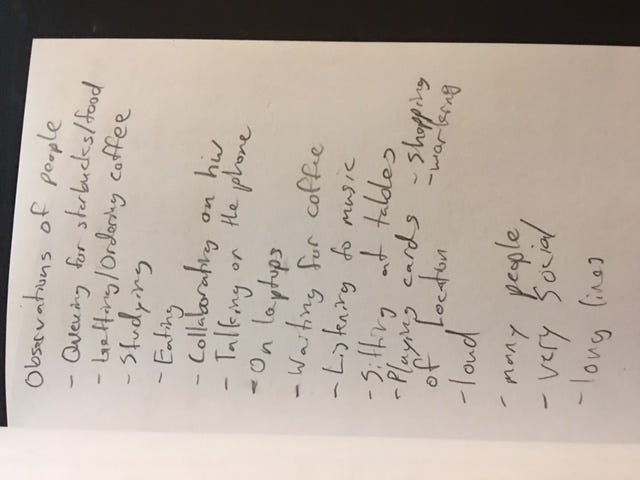 Observations of people
- Queuing for starbucks/food
- Getting/Ordering coffee
- Studying
- Eating
- Collaborating on hw
- Talking on the phone
- On laptops
- Waiting for coffee
- Listening to music
- Sitting at tables
- Playing cards
- Shopping
- working
of Location
- loud
- many people
- very social
- long lines